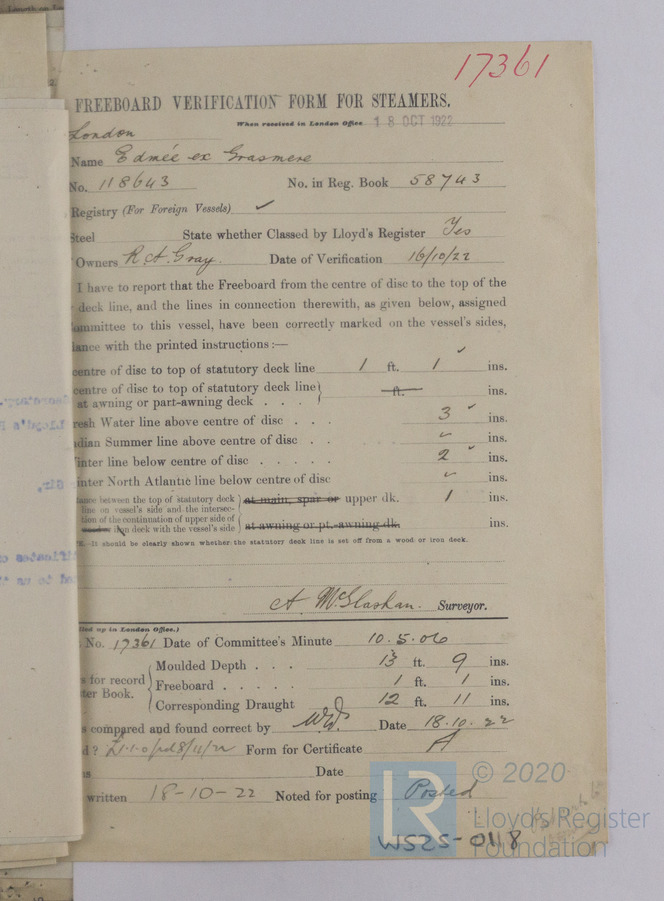 17361
FREEBOARD VERIFICATION FORM FOR STEAMERS.
When received in London Office 18 OCT 1922
London
Name Edmée ex Grasmere
No. 118643 No. in Reg. Book 58743
Registry (For Foreign Vessels) ✓
Steel State whether Classed by Lloyd's Register Yes
Owners R A. Gray. Date of Verification 16/10/22
I have to report that the Freeboard from the centre of disc to the top of the
deck line, and the lines in connection therewith, as given below, assigned
ommittee to this vessel, have been correctly marked on the vessel's sides,
iance with the printed instructions :—
centre of disc to top of statutory deck line 1 ft. 1 ✓ ins.
centre of disc to top of statutory deck line
at awning or part-awning deck . . . ft. ins.
resh Water line above centre of disc . . 3 ✓ ins.
dian Summer line above centre of disc . . ✓ ins.
inter line below centre of disc . . . . . 2 ✓ ins.
inter North Atlantic line below centre of disc ✓ ins.
tance between the top of statutory deck
line on vessel's side and the intersec-
tion of the continuation of upper side of
iron deck with the vessel's side
at main, spar or upper dk. 1 ins.
at awning or pt.-awning dk. ins.
E.—It should be clearly shown whether the statutory deck line is set off from a wood or iron deck.
A. McGlashan. Surveyor.
lled up in London Office.)
No. 17361 Date of Committee's Minute 10.5.06
s for record
ter Book.
Moulded Depth . . . 13 ft. 9 ins.
Freeboard . . . . . 1 ft. 1 ins.
Corresponding Draught 12 ft. 11 ins.
s compared and found correct by Date 18.10.22
d? £1-1-0 pd 8/11/22 Form for Certificate A
Date
written 18-10-22 Noted for posting Posted
© 2020
Lloyd's Register
Foundation
LR
WS25-0118